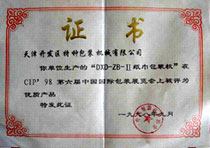 证书
天津开发区特种包装机械有限公司
你单位生产的“DXD-ZB-Ⅱ纸巾包装机”在
CIP'98第六届中国国际包装展览会上被评为
优质产品
特发此证
一九九八年九月